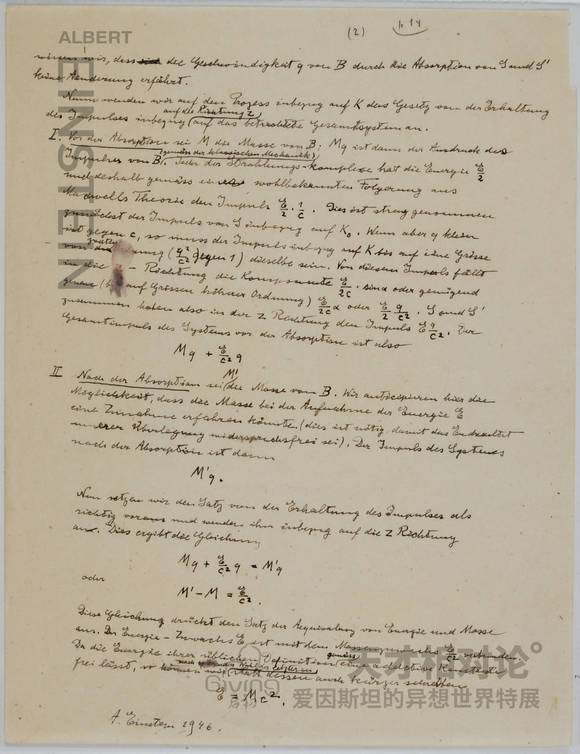 ALBERT
EINSTEIN
(2) p. 14
wissen wir, dass die Geschwindigkeit q von B durch die Absorption von S und S'
keine Aenderung erfährt.
Nunn wenden wir auf den Prozess inbezug auf K das Gesetz von der Erhaltung
auf die Richtung z
des Impulses inbezug auf das betrachtete Gesamtsystem an.
I. Vor der Absorption sei M die Masse von B; Mq ist dann der Ausdruck des
(gemäss der klassischen Mechanik)
Impulses von B. Jeder der Strahlungs-Komplexe hat die Energie E/2
und deshalb gemäss einer wohlbekannten Folgerung aus
Maxwells Theorie den Impuls E/2 · 1/c. Dies ist streng genommen
zunächst der Impuls von S inbezug auf K₀. Wenn aber q klein
ist gegen c, so muss der Impuls inbezug auf K bis auf eine Grösse
von (q²/c² gegen 1) dieselbe sein. Von diesem Impuls fällt
in die - Richtung die Komponente E/2c sin α oder genügend
genau (bis auf Grössen höherer Ordnung) E/2c α oder E/2 q/c². S und S'
zusammen haben also in der z Richtung den Impuls E q/c². Der
Gesamtimpuls des Systems vor der Absorption ist also
Mq + E/c² q
II Nach der Absorption sei M' die Masse von B. Wir anticipieren hier die
Möglichkeit, dass die Masse bei der Aufnahme der Energie E
eine Zunahme erfahren könnte (dies ist nötig, damit das Endresultat
unserer Überlegung widerspruchsfrei sei). Der Impuls des Systems
nach der Absorption ist dann
M'q.
Nun setzen wir den Satz von der Erhaltung des Impulses als
richtig voraus und wenden ihn inbezug auf die z Richtung
an. Dies ergibt die Gleichung
Mq + E/c² q = M'q
oder
M' - M = E/c².
Diese Gleichung drückt den Satz der Aequivalenz von Energie und Masse
aus. Der Energie-Zuwachs E ist mit dem Massenzuwachs E/c² verbunden.
Da die Energie ihrer üblichen Definition gemäss eine additive Konstante
frei lässt, so können wir statt dessen auch kürzer schreiben
E = Mc².
A. Einstein 1946.
天才相对论
Giving
爱因斯坦的异想世界特展